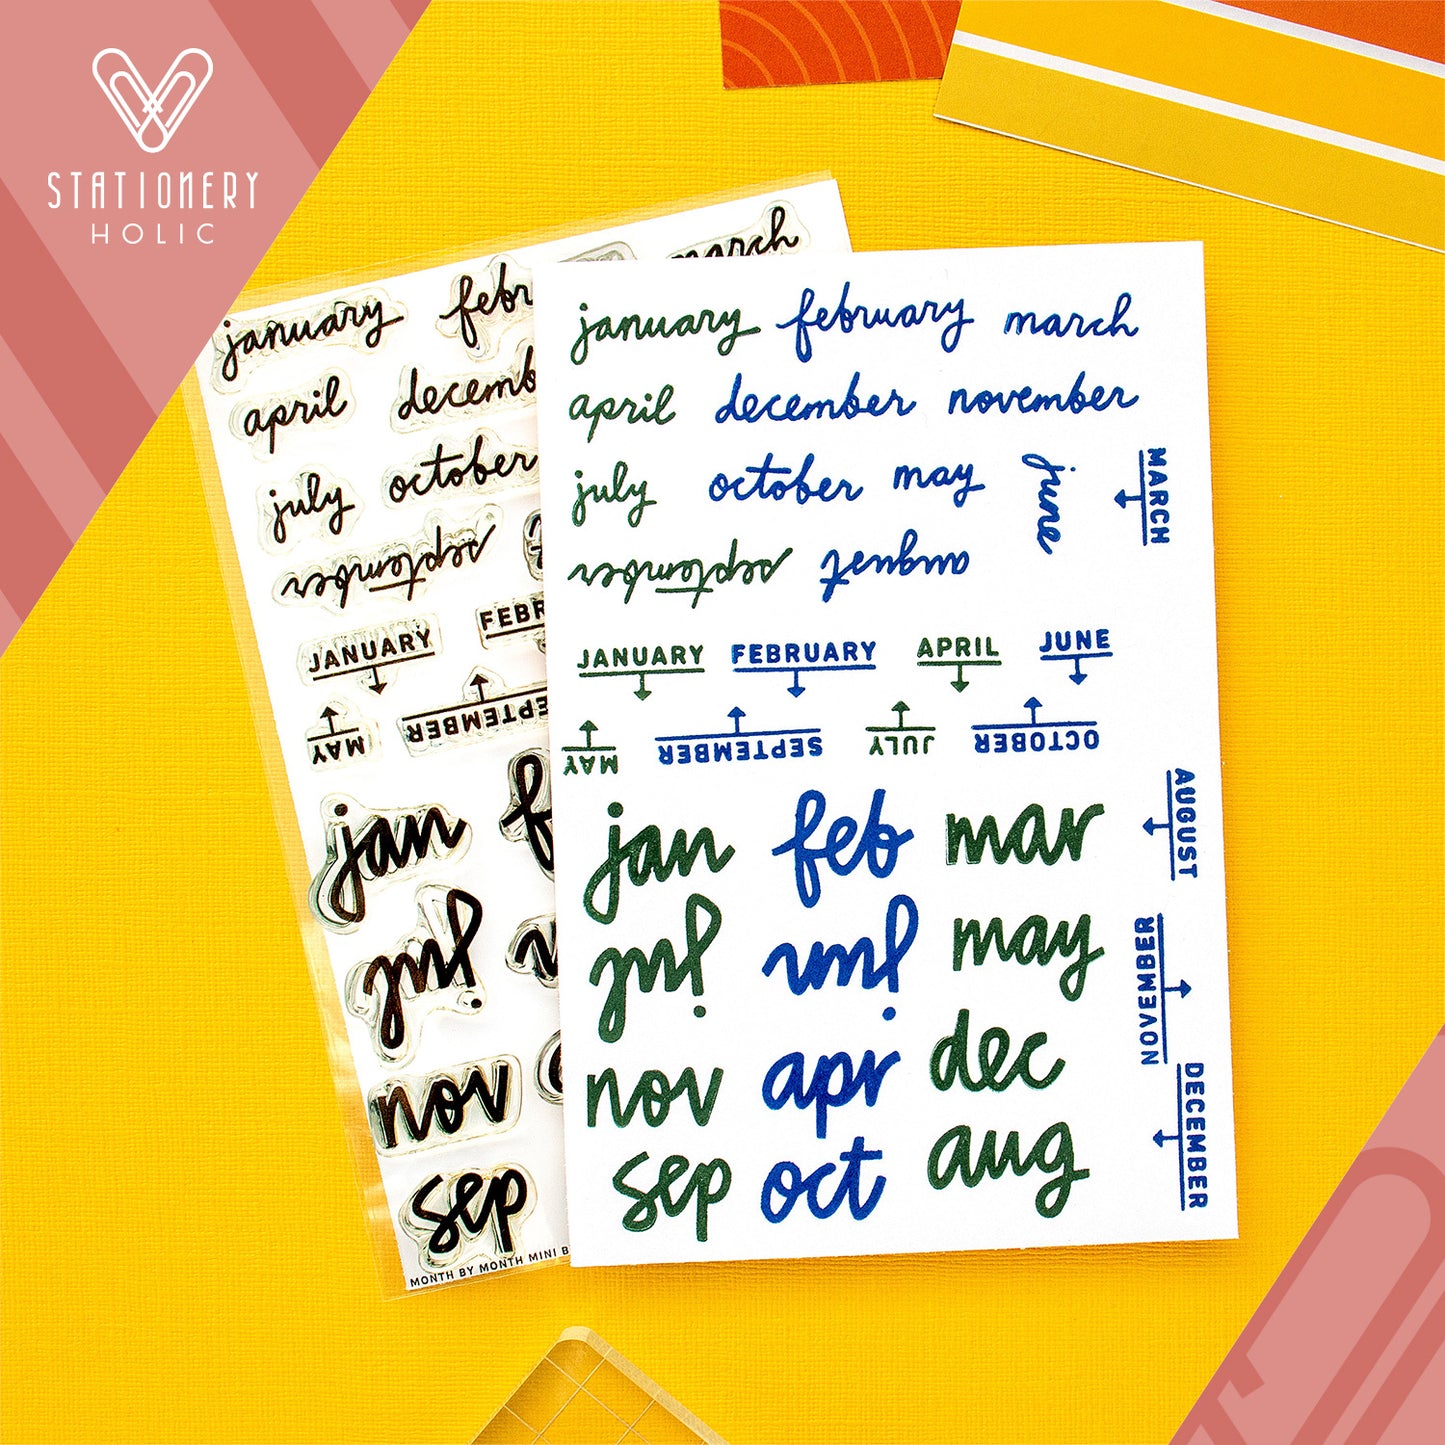 STATIONERY
HOLIC
january febr march
april decemb
july october
september
JANUARY FEBR
MAY SEPTEMBER
jan
jul
nov
sep
MONTH BY MONTH MINI B
january february march
april december november
july october may june
september august
MARCH
JANUARY FEBRUARY APRIL JUNE
MAY SEPTEMBER JULY OCTOBER
AUGUST
jan feb mar
jul jun may
NOVEMBER
nov apr dec
DECEMBER
sep oct aug